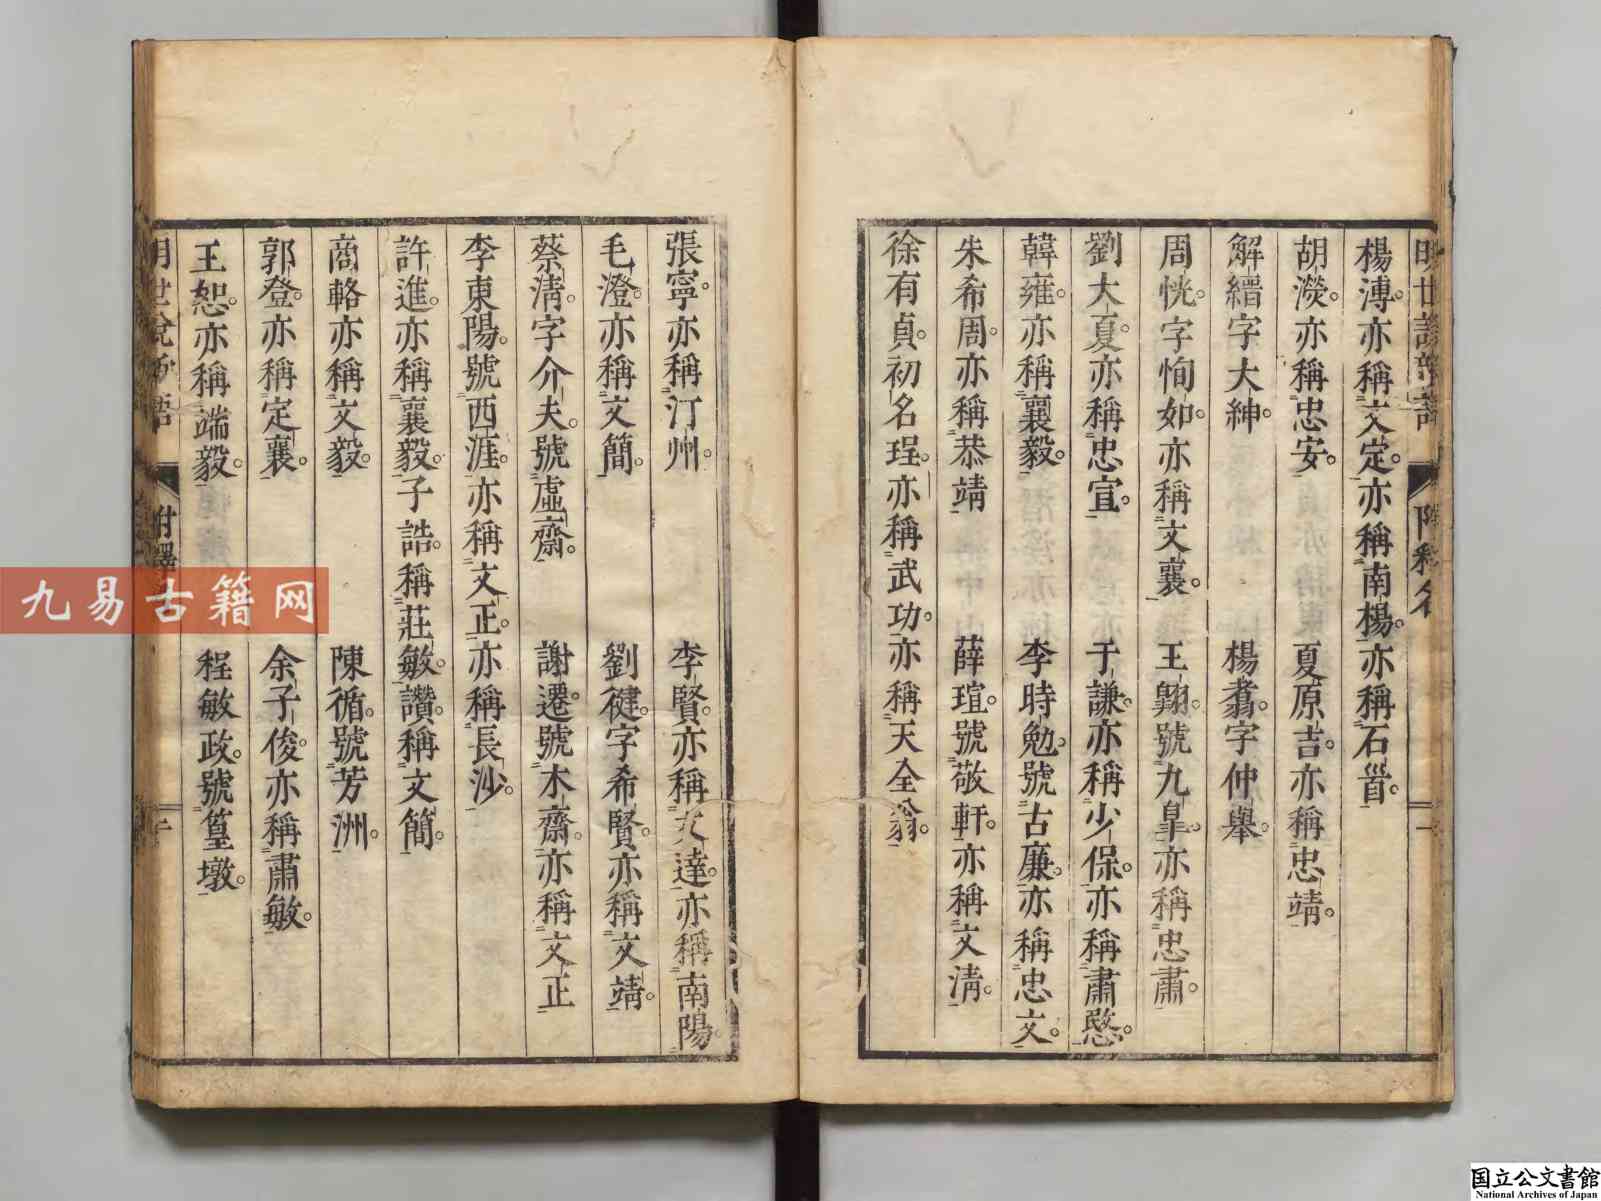 明世說新語 附釋名 一
楊溥。亦稱文定。亦稱南楊。亦稱石首。
胡濙。亦稱忠安。 夏原吉。亦稱忠靖。
解縉字大紳。 楊翥。字仲舉。
周恍。字恂如。亦稱文襄。 王翺。號九皐。亦稱忠肅。
劉大夏。亦稱忠宣。 于謙。亦稱少保。亦稱肅愍。
韓雍。亦稱襄毅。 李時勉。號古廉。亦稱忠文。
朱希周。亦稱恭靖 薛瑄。號敬軒。亦稱文清。
徐有貞。初名珵。亦稱武功。亦稱天全翁。
張寧。亦稱汀州。 李賢。亦稱文達。亦稱南陽。
毛澄。亦稱文簡。 劉健。字希賢。亦稱文靖。
蔡清。字介夫。號虛齋。 謝遷。號木齋。亦稱文正
李東陽。號西涯。亦稱文正。亦稱長沙。
許進。亦稱襄毅。子誥。稱莊敏。讚。稱文簡。
商輅亦稱文毅。 陳循。號芳洲。
郭登。亦稱定襄。 余子俊。亦稱肅敏。
王恕。亦稱端毅。 程敏政。號篁墩。
明世說新語 附釋
九易古籍网
国立公文書館
National Archives of Japan